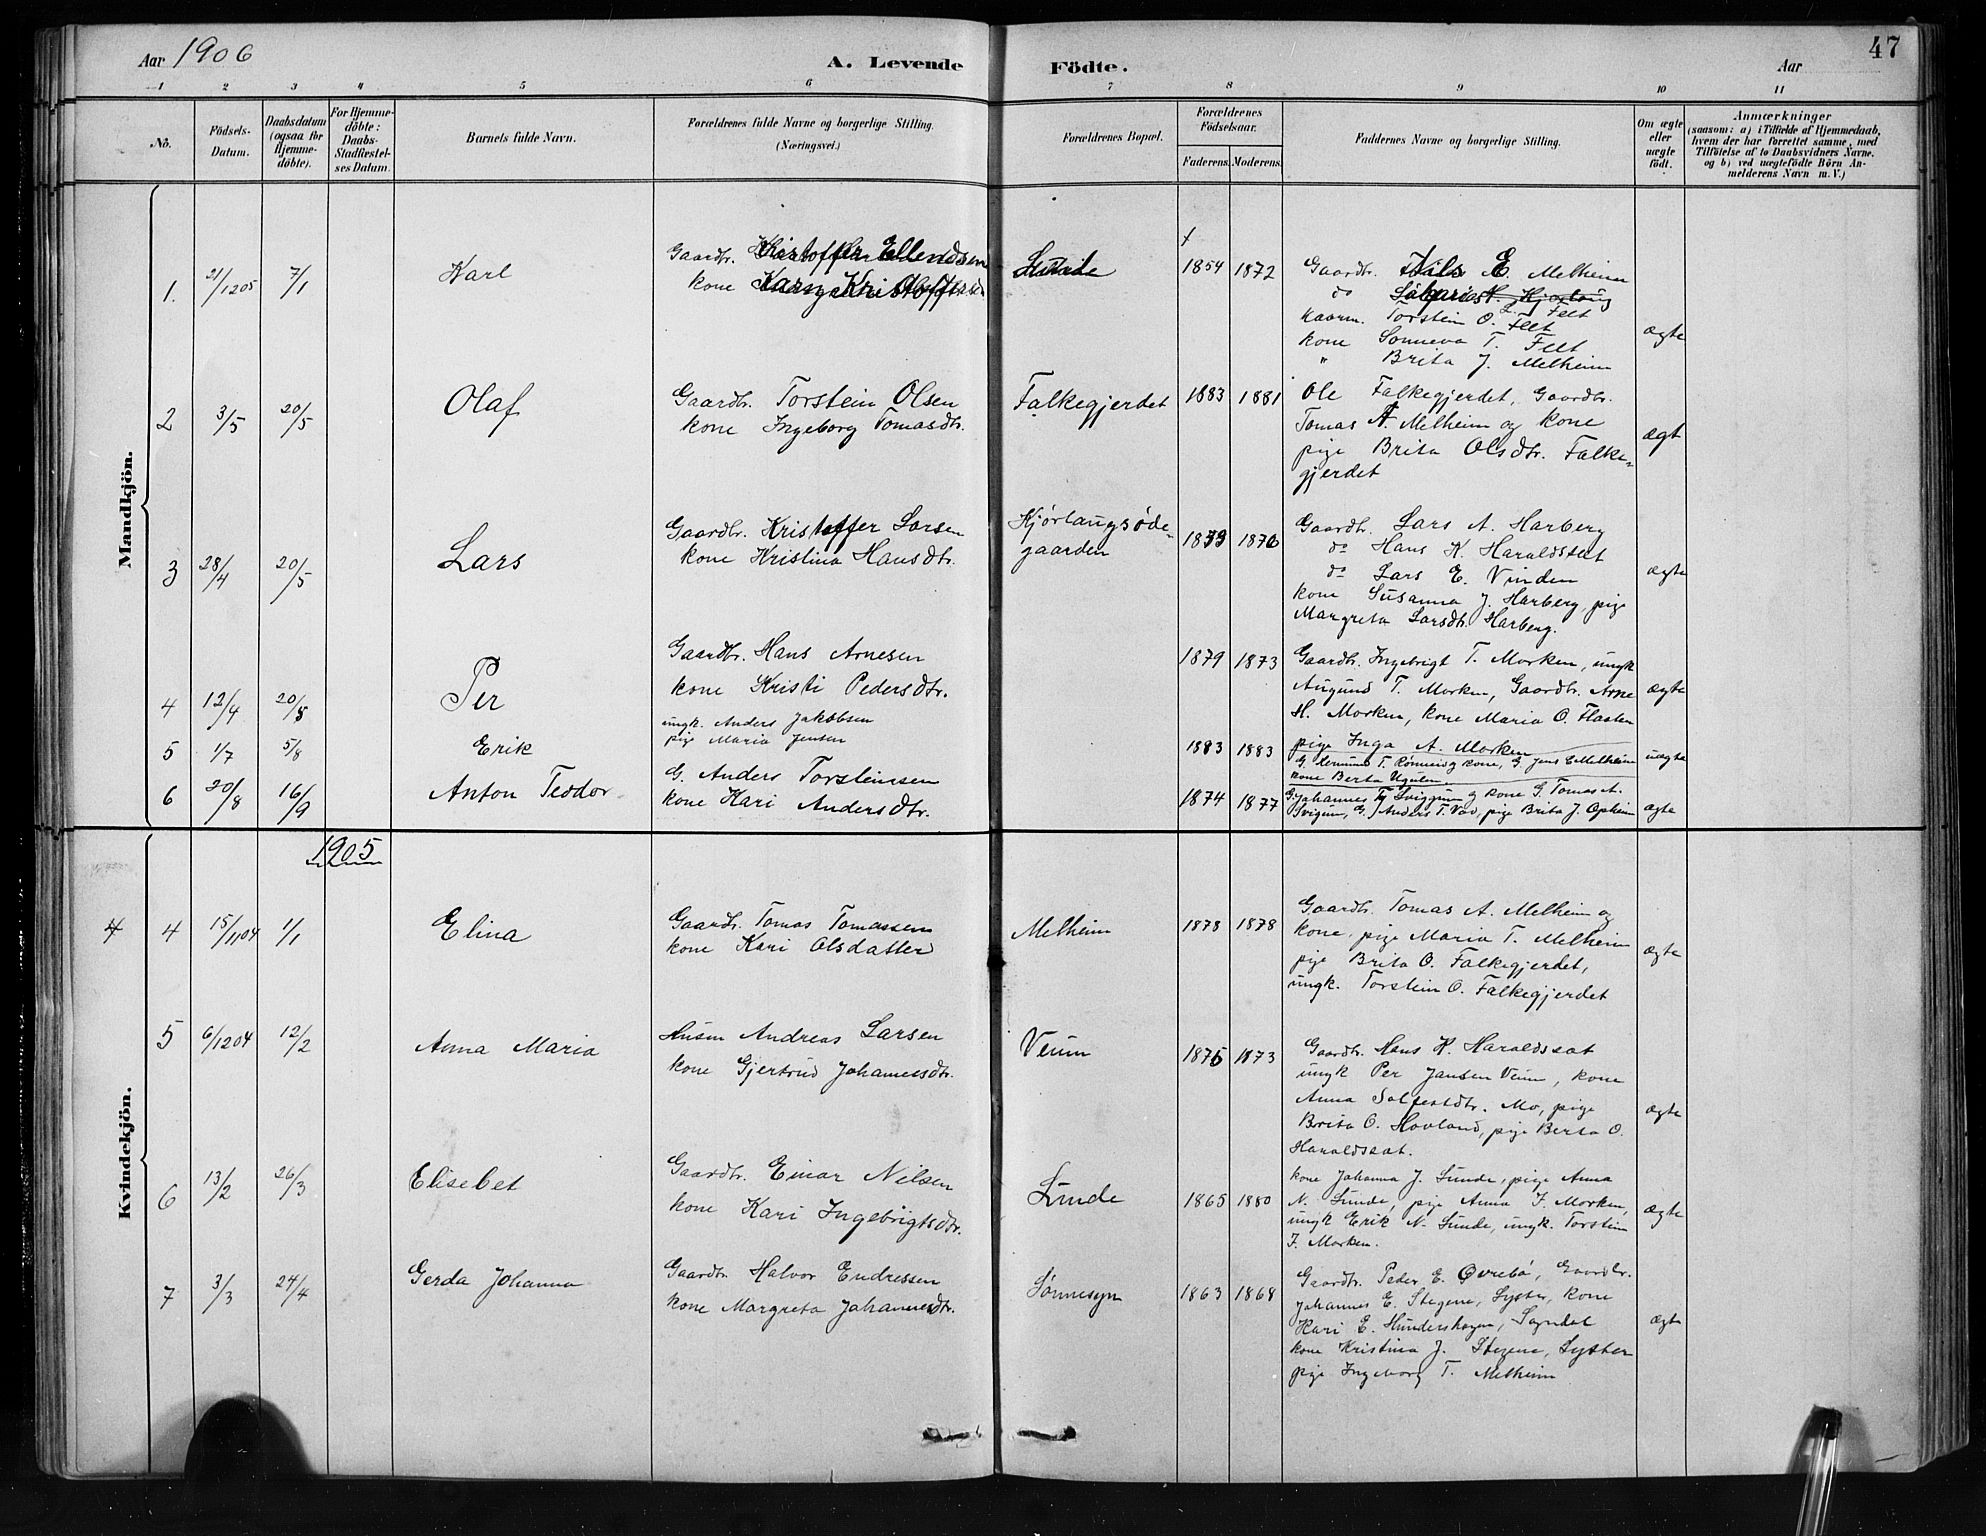 Aar 1906
A. Levende Födte.
Aar
47
1 2 3 4 5 6 7 8 9 10 11
No.
Födsels-
Datum.
Daabsdatum
(ogsaa for
Hjemme-
döbte).
For Hjemme-
döbte:
Daabs-
Stadfæstel-
ses Datum.
Barnets fulde Navn.
Forældrenes fulde Navne og borgerlige Stilling.
(Næringsvei.)
Forældrenes Bopæl.
Forældrenes
Födselsaar.
Faderens. Moderens.
Faddernes Navne og borgerlige Stilling.
Om ægte
eller
uægte
født.
Anmærkninger
(saasom: a) i Tilfælde af Hjemmedaab,
hvem der har forrettet samme, med
Tilföielse af to Daabsvidners Navne,
og b) ved uægtefödte Börn An-
melderens Navn m. V.)
Mandkjön.
1. 21/12 05 7/1 Karl
Gaardbr. Kristoffer Ellendsen
kone
1854 1872
Gaardbr. Nils E. Melheim
do
kaarm. Torstein O. Felt
kone Sonneva T. Felt
" Brita J. Melheim
ægte
2 3/5 20/5 Olaf
Gaardbr. Torstein Olsen
kone Ingeborg Tomasdtr.
Falkegjerdet
1883 1881
Ole Falkegjerdet, Gaardbr.
Tomas A. Melheim og kone
pige Brita Olsdtr. Falke-
gjerdet
ægt
3 28/4 20/5 Lars
Gaardbr. Kristoffer Larsen
kone Kristina Hansdtr.
Kjørlaugsøde-
gaarden
1876
Gaardbr. Lars A. Harberg
do Hans K. Haraldsset
do Lars E. Vinden
kone Susanna J. Harberg, pige
Margreta Larsdtr. Harberg.
ægte
4 12/4 20/5 Per
Gaardbr. Hans Arnesen
kone Kristi Pedersdtr.
1879 1873
Gaardbr. Ingebrigt T. Morken, ungk
Augund T. Morken, Gaardbr. Arne
H. Morken, kone Maria O. Flaten
pige Inga A. Morken
ægte
5 1/7 5/8 Erik
ungk. Anders Jakobsen
pige Maria Jensen
1883 1883
T. Rønnei og kone, G. Jens E Melheim
kone Berta Ugulen
uægte
6 20/8 16/9 Anton Teodor
G. Anders Torsteinsen
kone Kari Andersdtr.
1874 1877
G. Johannes T. Sviggum og kone G. Tomas A.
Svigum, G. Anders T. Væ, pige Brita J. Opheim
ægte
1905
Kvindekjön.
4 4 15/11 04 1/1 Elina
Gaardb. Tomas Tomassen
kone Kari Olsdatter
Melheim
1878 1878
Gaardbr. Tomas A. Melheim og
kone, pige Maria T. Melheim
pige Brita O. Falkegjerdet,
ungk. Torstein O. Falkegjerdet
ægte
5 6/12 04 12/2 Anna Maria
Husm Andreas Larsen
kone Gjertrud Johannesdtr.
Veum
1875 1873
Gaardbr. Hans K. Haraldssæt
ungk Per Jansen Veum, kone
Anna Solfestdtr. Mo, pige
Brita O. Hovland, pige Berta O.
Haraldssæt.
ægte
6 13/2 26/3 Elisebet
Gaardbr. Einar Nilsen
kone Kari Ingebrigtsdtr.
Lunde
1865 1880
kone Johanna J. Lunde, pige Anna
N. Lunde, pige Anna I. Morken,
ungk Erik N. Lunde, ungk. Torstein
I. Morken.
ægte
7 3/3 24/4 Gerda Johanna
Gaardbr Halvor Endressen
kone Margreta Johannesdtr.
Sønnesyn
1863 1868
Gaardbr. Peder E. Øvrebø, Gaardbr.
Johannes E. Stegene, Lyster, kone
Kari E. Hundershagen, Sogndal
kone Kristina J. Stegene, Lyster
pige Ingeborg T. Melheim
ægte